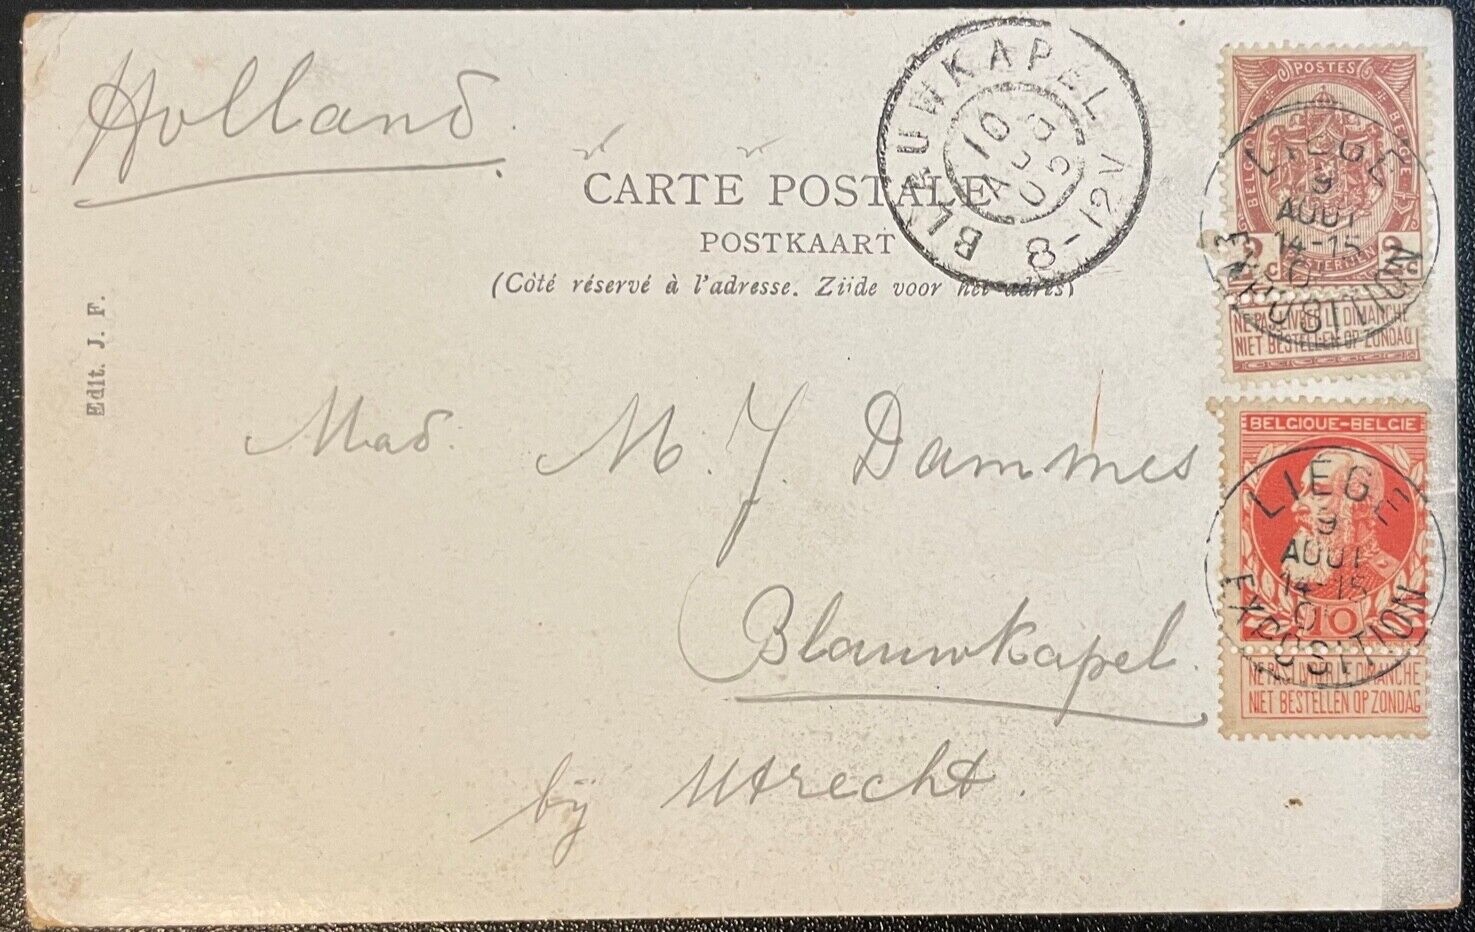 Holland.
CARTE POSTALE
POSTKAART
(Côté réservé à l'adresse. Zijde voor het adres)
Edit. J. F.
Mad. M. J. Dammes
Blauwkapel.
bij Utrecht.
BLAUWKAPEL
10 AUG 05
8-12V
POSTES
BELGIQUE BELGIE
2 2
LIEGE
9
AOUT
14-15
EXPOSITION
NE PAS LIVRER LE DIMANCHE
NIET BESTELLEN OP ZONDAG
BELGIQUE-BELGIE
LIEGE
9
AOUT
14-15
10
EXPOSITION
NE PAS LIVRER LE DIMANCHE
NIET BESTELLEN OP ZONDAG